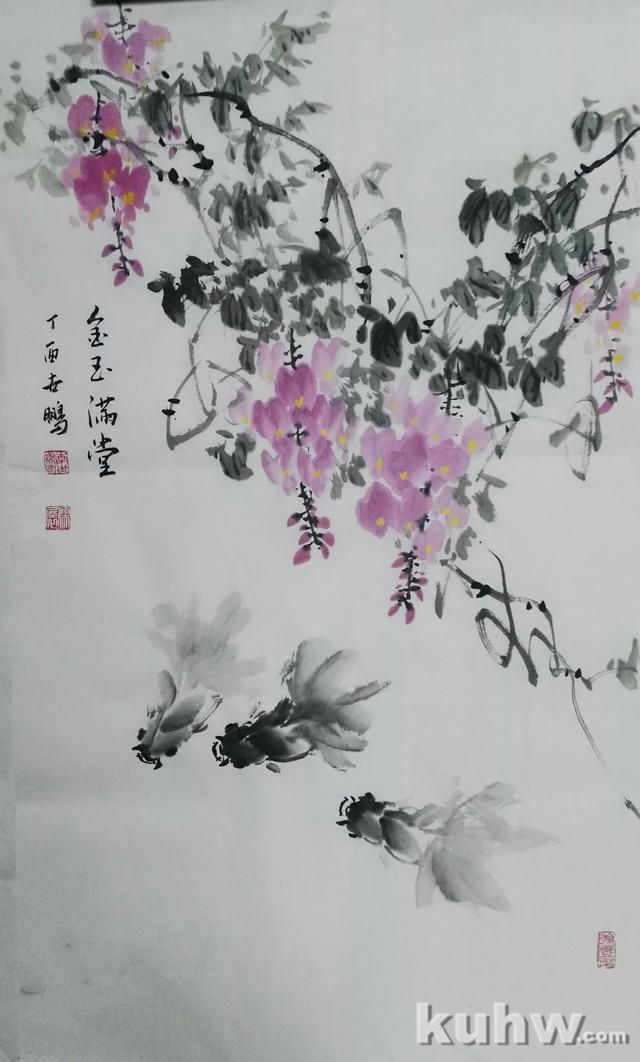 金玉满堂
丁酉世鹏
kuhw.com